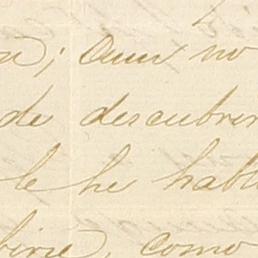 ; Aun no
de descubrir
le he habl
, como